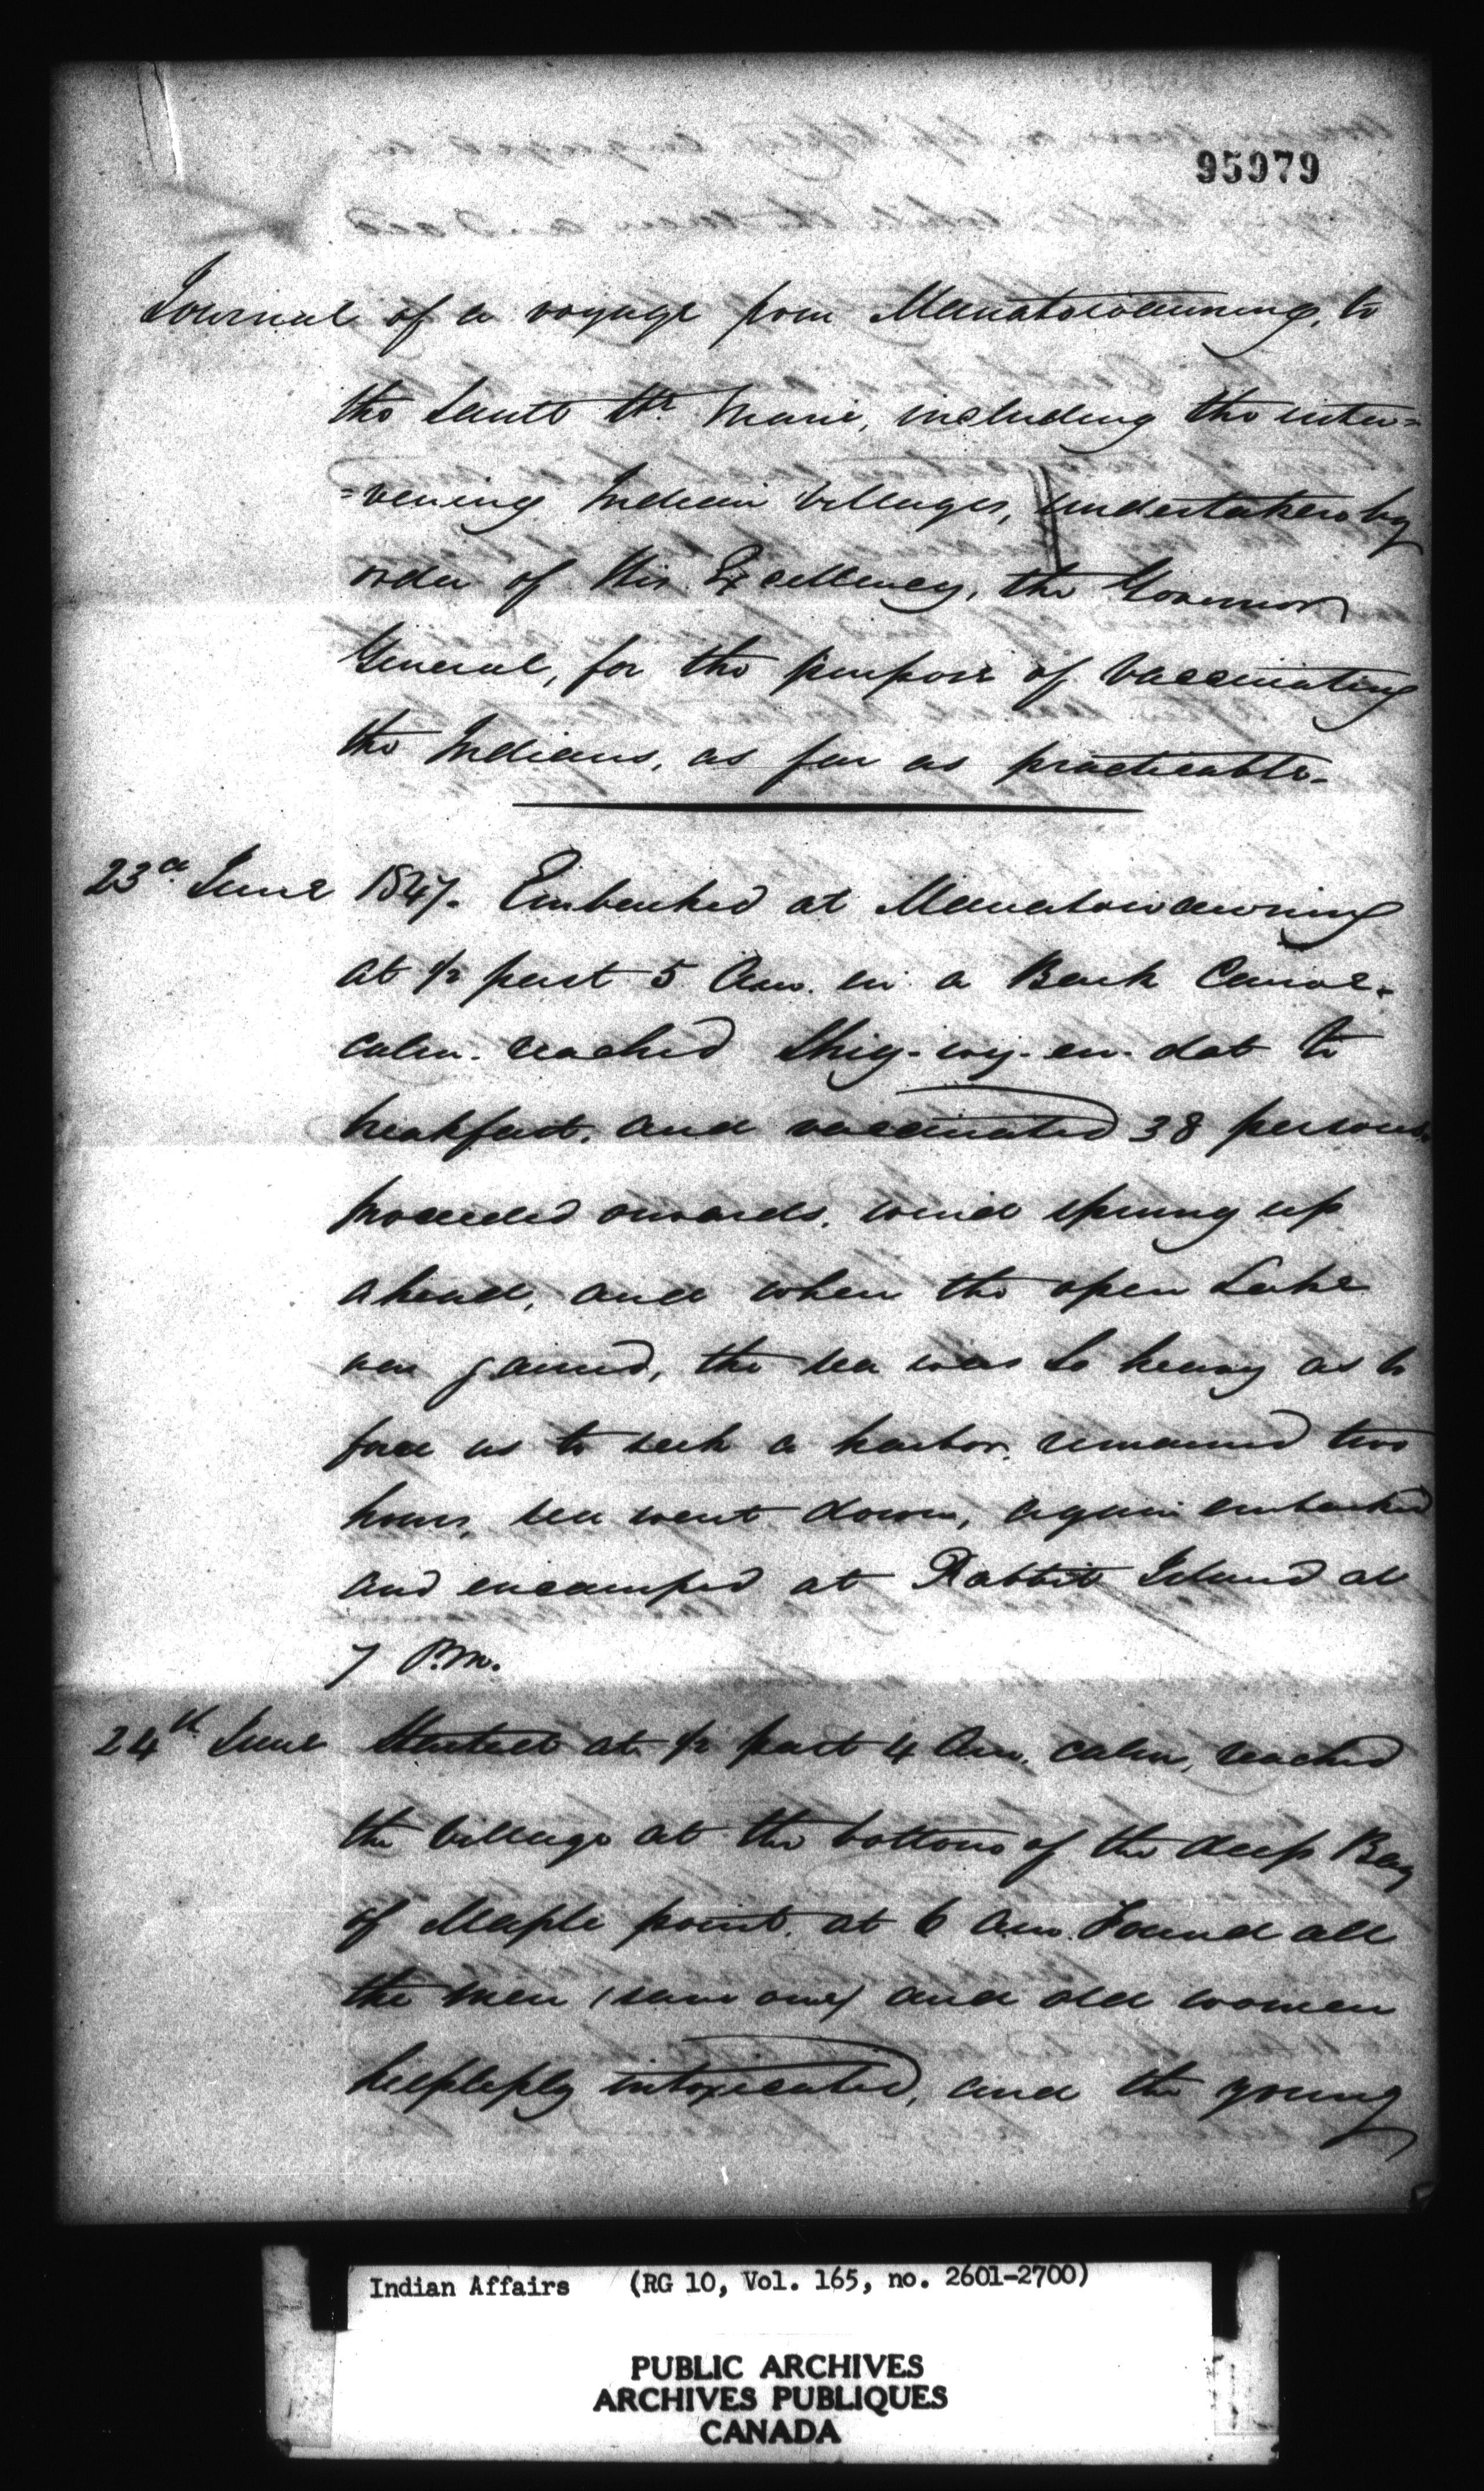 95979
Journal of a voyage from Manatowauning, to
the Sault Ste Marie, including the inter=
=vening Indian Villages, undertaken by
order of His Excellency, the Governor
General, for the purpose of Vaccinating
the Indians, as far as practicable.
23d June 1847. Embarked at Manatowawning
at ½ past 5 Am. in a Bark Canoe.
calm. reached Shig-wy-en-dat to
breakfast, and vaccinated 38 persons.
proceeded onwards, wind sprung up
ahead, and when the open Lake
was gained, the sea was so heavy as to
force us to seek a harbor, remained two
hours, sea went down, again embarked
and encamped at Rabbit Island at
7 P.m.
24th June Started at ½ past 4 Am. calm, reached
the village at the bottom of the deep Bay
of Maple point. at 6 Am. Found all
the men (save one) and old women
helplessly intoxicated, and the young
Indian Affairs (RG 10, Vol. 165, no. 2601-2700)
PUBLIC ARCHIVES
ARCHIVES PUBLIQUES
CANADA